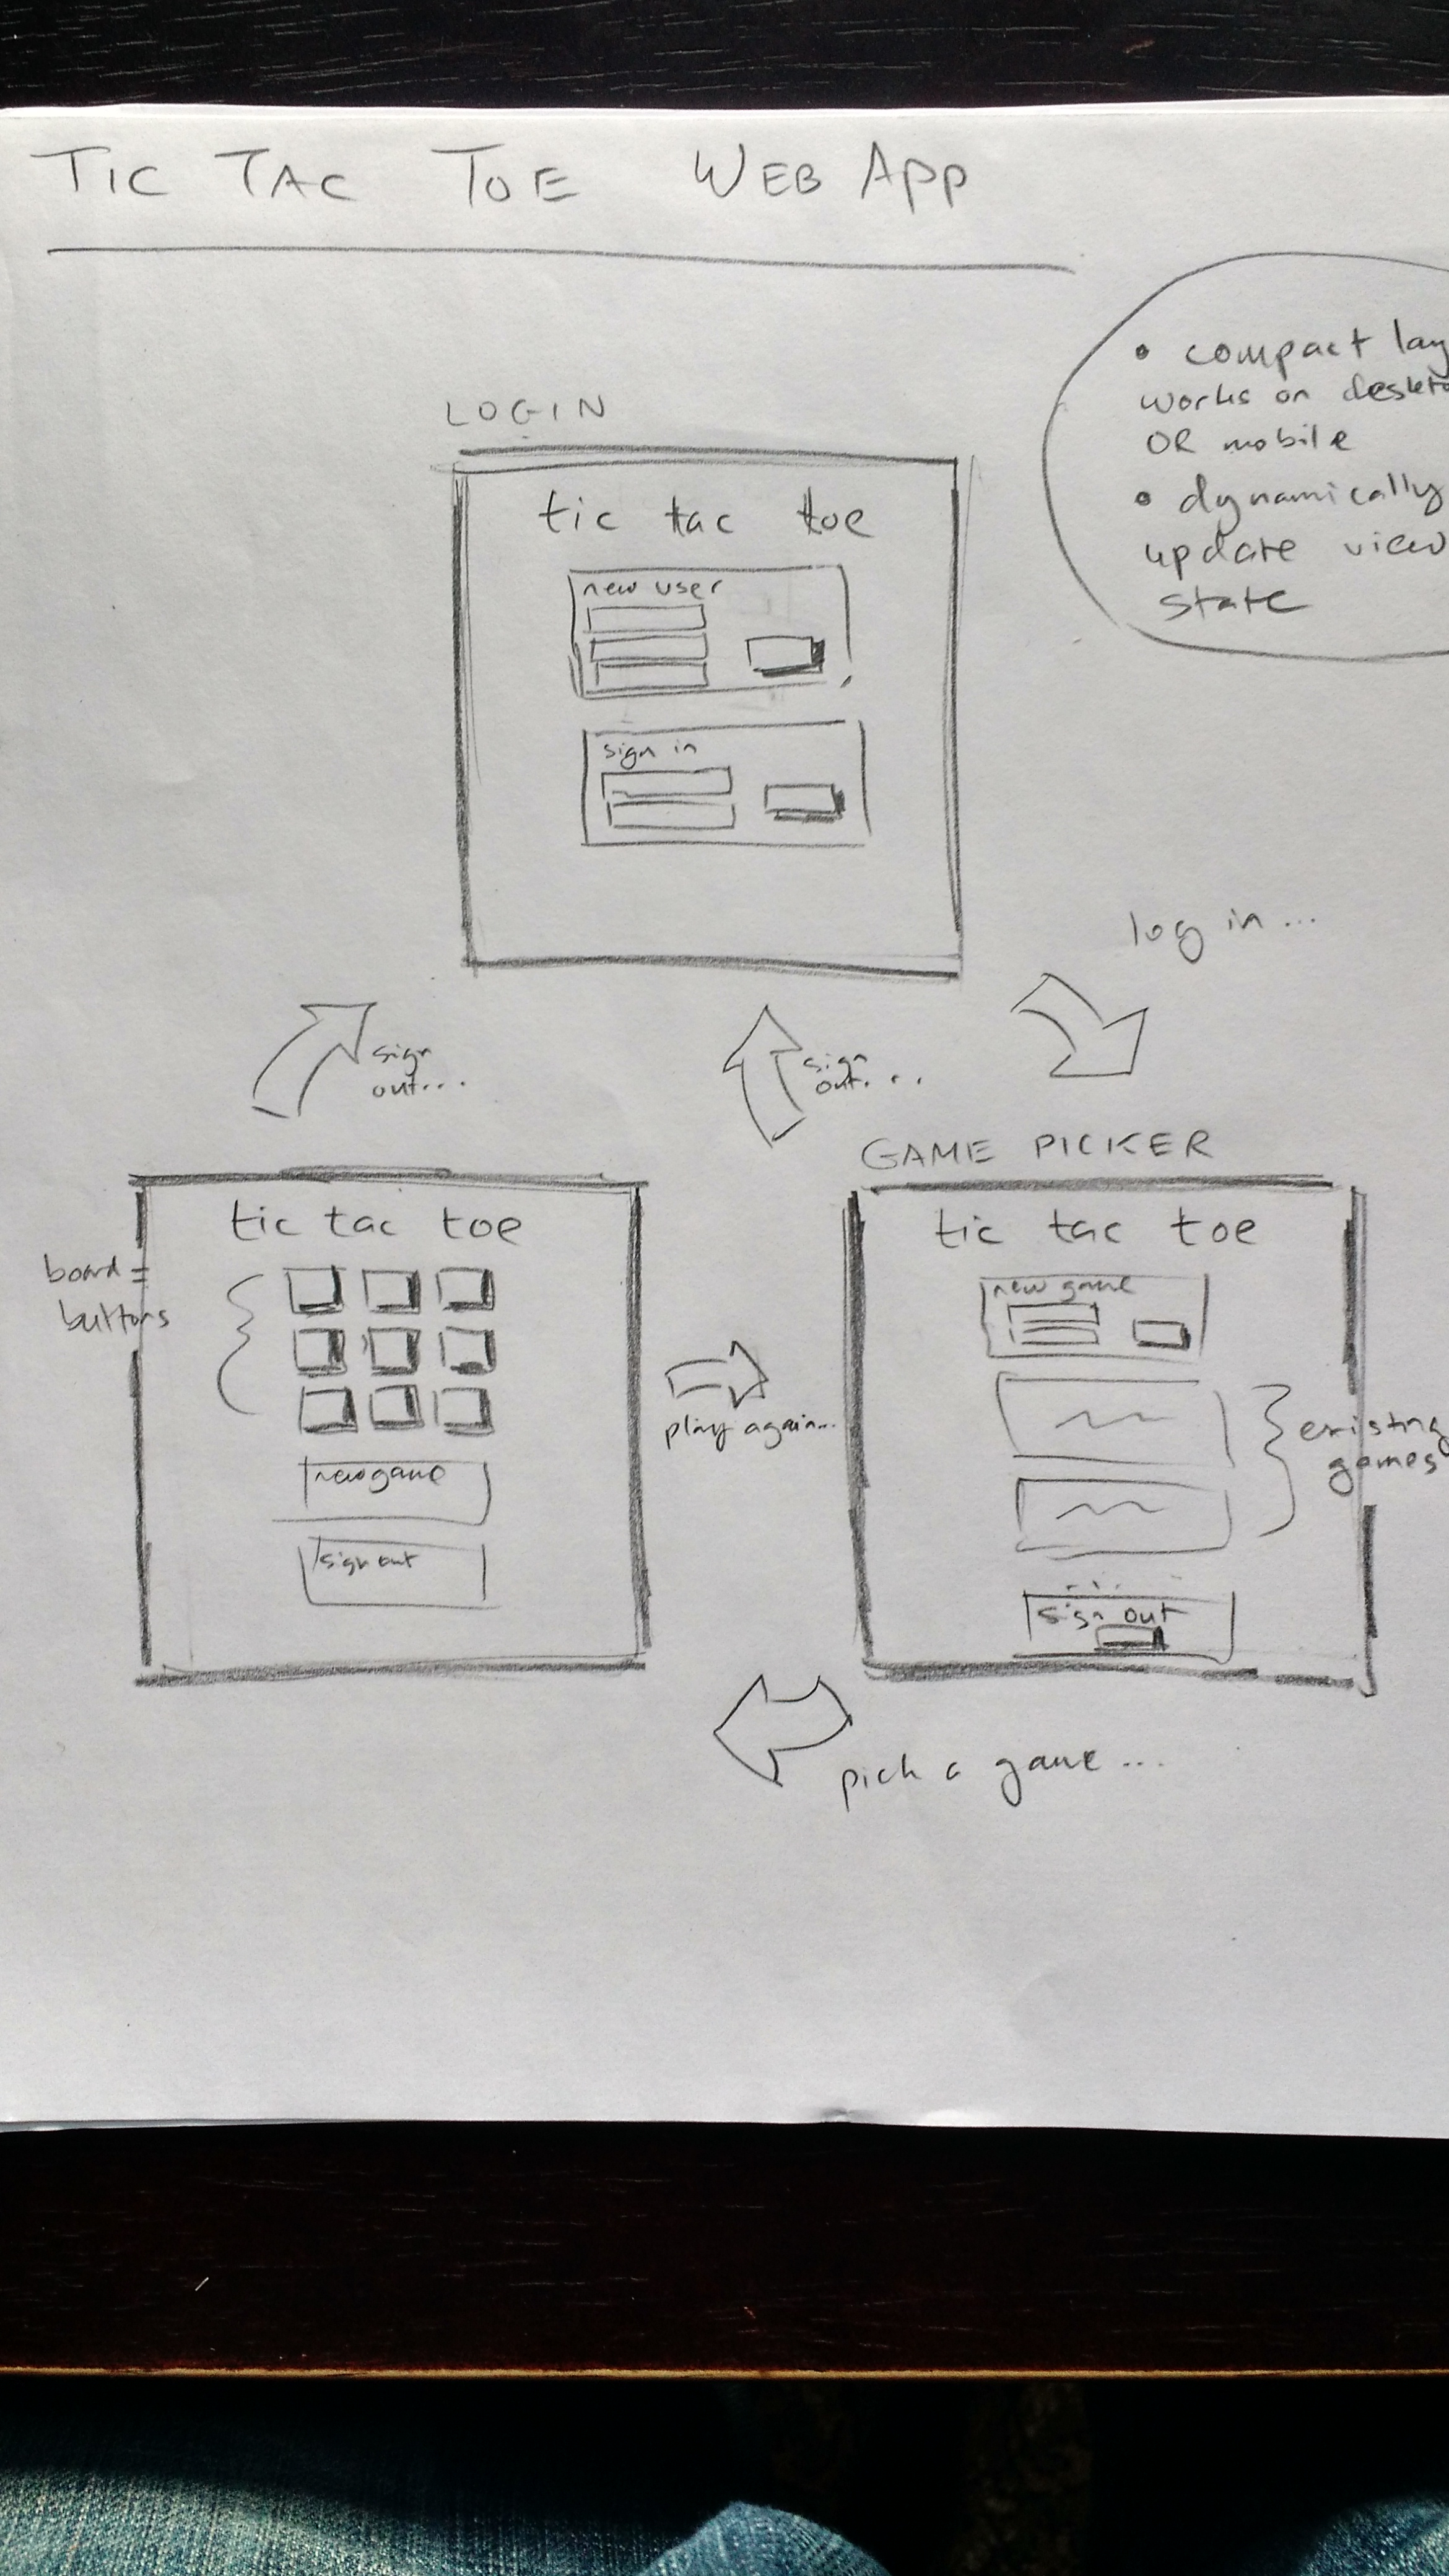 TIC TAC TOE WEB APP
• compact lay
works on deskto
OR mobile
• dynamically
update view
state
LOGIN
tic tac toe
new user
sign in
log in ...
sign
out...
sign
out...
GAME PICKER
tic tac toe
board =
buttons
new game
sign out
play again...
tic tac toe
new game
existing
games
sign out
pick a game ...